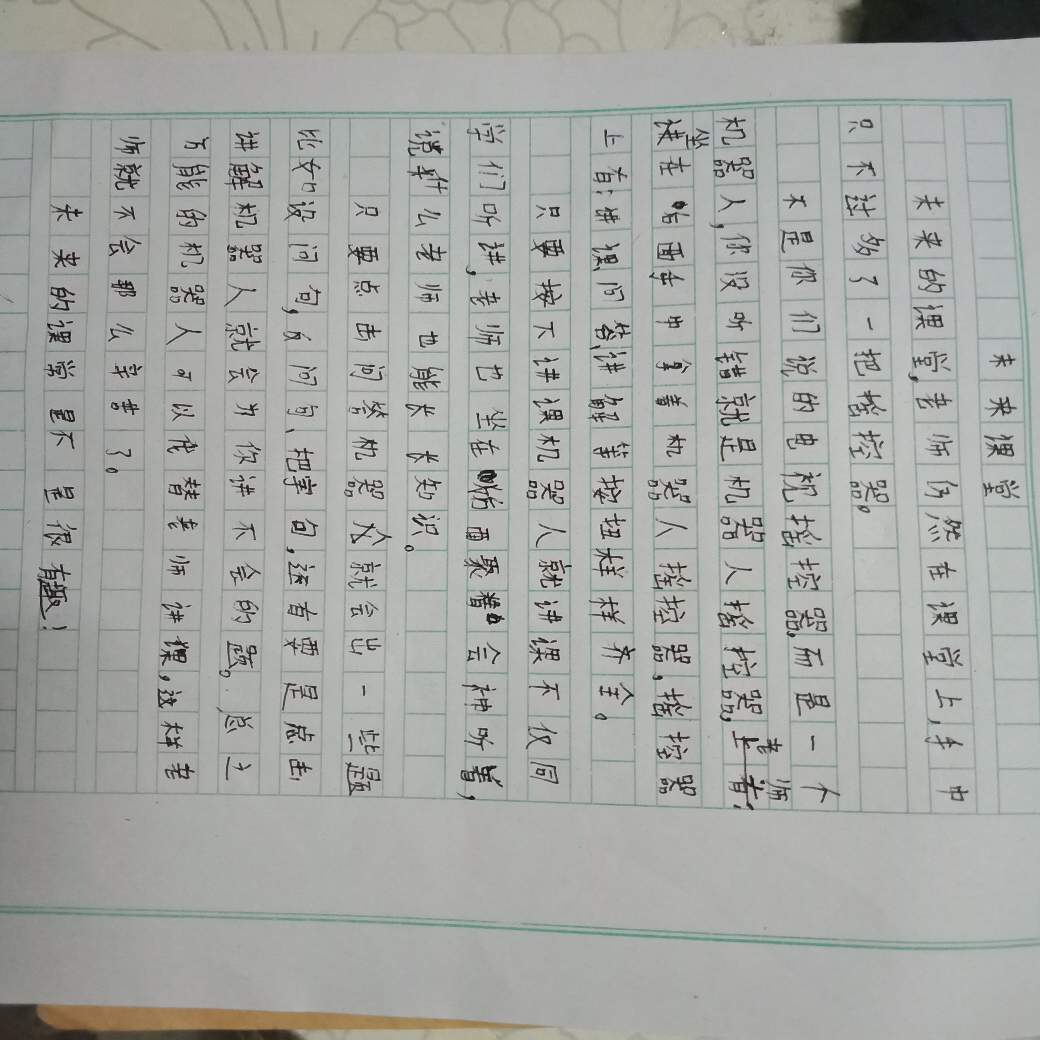 未来课堂
未来的课堂,老师仍然在课堂上,手中
只不过多了一把摇控器。
不是你们说的电视摇控器,而是一个
机器人,你没听错就是机器人摇控器,老师
坐在后面手中拿着机器人摇控器,摇控器
上有:讲课、问答、讲解等按扭样样齐全。
只要按下讲课机器人就讲课不仅同
学们听讲,老师也坐在后面聚精会神听着,
说不什么老师也能长长知识。
只要点击问答机器人就会出一些题
比如设问句,反问句、把字句,还有要是点击
讲解机器人就会为你讲不会的题。总之
万能的机器人可以代替老师讲课,这样老
师就不会那么辛苦了。
未来的课堂是不是很有趣!